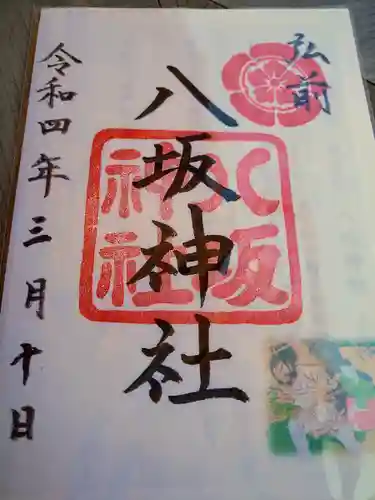 弘前
八坂神社
八坂
神社
令和四年三月十日